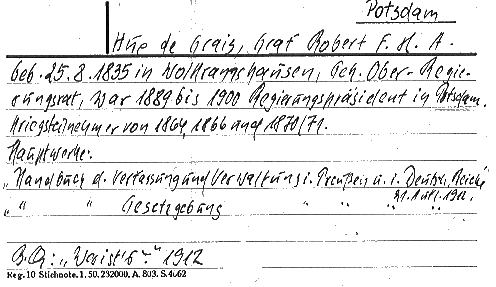 Potsdam
Hue de Grais, Graf Robert F. H. A.
Geb. 25.8.1835 in Wolkramshausen, Geh. Ober-Regie-
rungsrat, war 1889 bis 1900 Regierungspräsident in Potsdam.
Kriegsteilnehmer von 1864, 1866 und 1870/71.
Hauptwerke:
"Handbuch d. Verfassung und Verwaltung i. Preußen u. i. Deutsch. Reiche"
21. Aufl. 1912.
" " Gesetzgebung " " " "
B.Q.: "Wer ist's" 1912
Reg. 10 Stichnote. 1. 50. 232000. A. 803. S. 4062